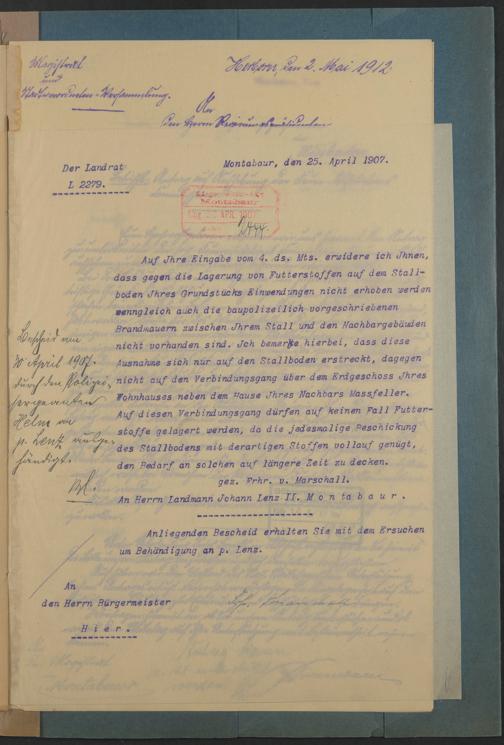 Magistrat
und
Stadtverordneten-Versammlung.
den 2. Mai 1912
An
den Herrn Regierungspräsidenten
Der Landrat
L 2279.
Montabaur, den 25. April 1907.
Montabaur
APR. 1907
Auf Jhre Eingabe vom 4. ds. Mts. erwidere ich Jhnen,
dass gegen die Lagerung von Futterstoffen auf dem Stall-
boden Jhres Grundstücks Einwendungen nicht erhoben werden
wenngleich auch die baupolizeilich vorgeschriebenen
Brandmauern zwischen Jhrem Stall und den Nachbargebäuden
nicht vorhanden sind. Jch bemerke hierbei, dass diese
Ausnahme sich nur auf den Stallboden erstreckt, dagegen
nicht auf den Verbindungsgang über dem Erdgeschoss Jhres
Wohnhauses neben dem Hause Jhres Nachbars Massfeller.
Auf diesen Verbindungsgang dürfen auf keinen Fall Futter-
stoffe gelagert werden, da die jedesmalige Beschickung
des Stallbodens mit derartigen Stoffen vollauf genügt,
den Bedarf an solchen auf längere Zeit zu decken.
gez. Frhr. v. Marschall.
An Herrn Landmann Johann Lenz II. Montabaur.
Bescheid am
30 April 1907.
durch den Polizei-
sergeanten
Helm an
p. Lenz ausge-
händigt.
Anliegenden Bescheid erhalten Sie mit dem Ersuchen
um Behändigung an p. Lenz.
An
den Herrn Bürgermeister
Hier.